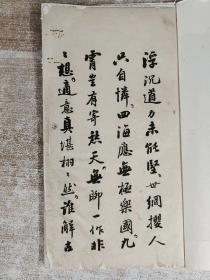 浮沉道力未能堅。世網攖人
只自憐。四海應無極樂國。九
霄豈有寄愁天。無聊一作非
〻想。適意真堪栩〻然。誰解古